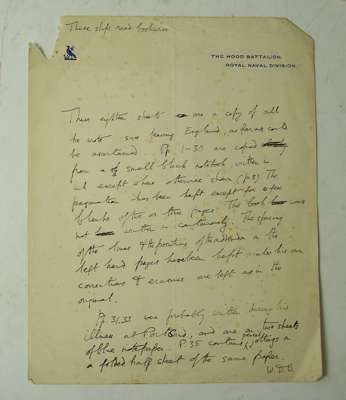 These slips need bookcase
THE HOOD BATTALION,
ROYAL NAVAL DIVISION.
These eighteen sheets are a copy of all
he wrote since leaving England, as far as could
be ascertained. Pp. 1-30 are copied
from a small black notebook written in
ink except where otherwise shewn (p. 8) The
pagination has been kept except for a few
blanks of two or three pages. The book was
not written in continuously. The spacing
of the lines & the position of the address on the
left hand pages have been kept, unless his own
corrections & erasures are left as in the
original.
Pp. 31.33 were probably written during his
illness at Port Said, and are on two sheets
of blue notepaper. P. 35 contains jottings on
a folded half sheet of the same paper.
W.D.B.